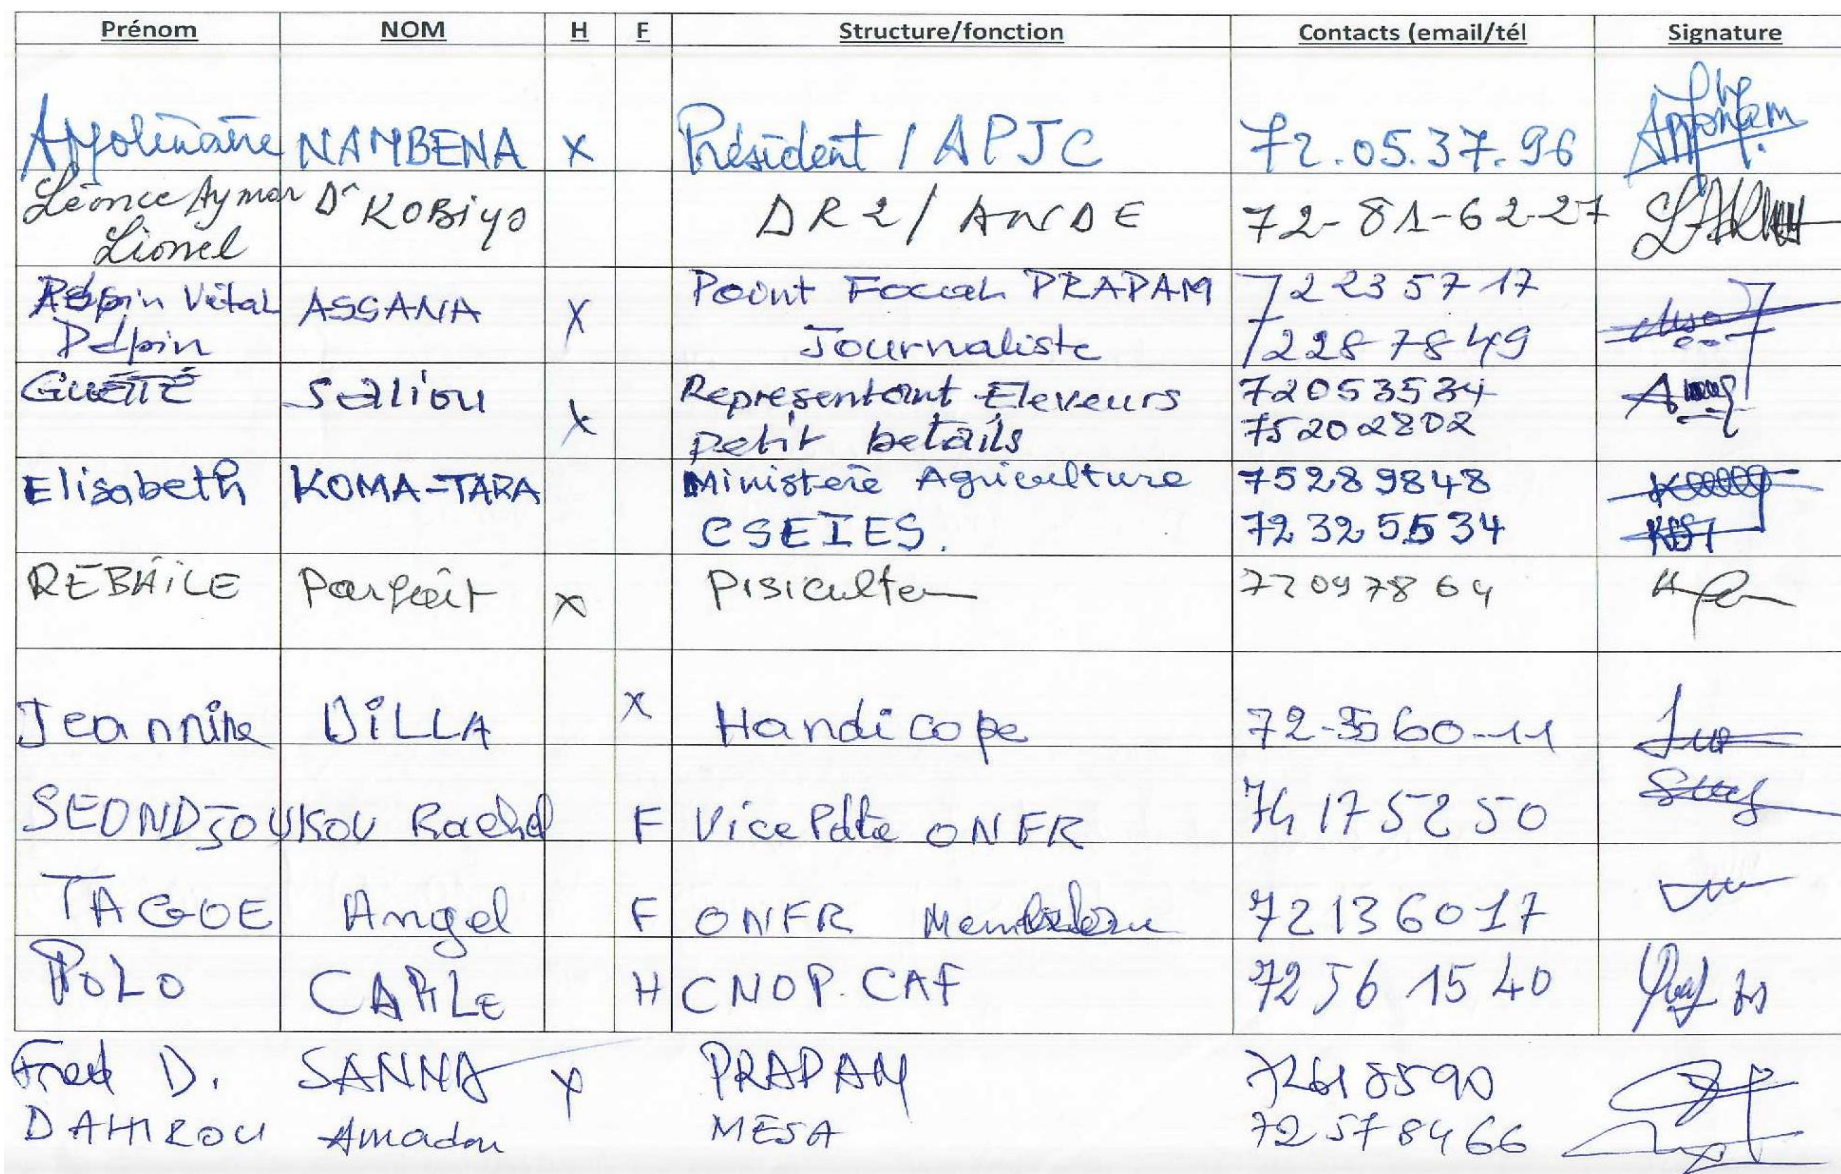 Prénom NOM H F Structure/fonction Contacts (email/tél Signature
Appolinaire NAMBENA X Président / APJC 72.05.37.96
Léonce Aymar Dr KOBIYO DR2/ ANDE 72-81-62-27
Lionel
Vital ASSANA X Point Focal PRAPAM 72235717
Pépin Journaliste 72287849
GUÉITÉ Saliou X Representant Eleveurs 72053534
petit betails 75202802
Elisabeth KOMA-TARA Ministère Agriculture 75289848
CSEIES. 72325534
REBAÏLE Parfait X Pisiculteur 72097864
Jeannine DILLA X Handicape 72-35 60-11
SEONDJOUKOU Rachel F Vice Pdte ONFR 74175250
TAGOE Angel F ONFR 72136017
POLO CARLE H CNOP.CAF 72561540
Fred D. SANNA X PRAPAM 72618590
DAHIROU Amadou MESA 72578466